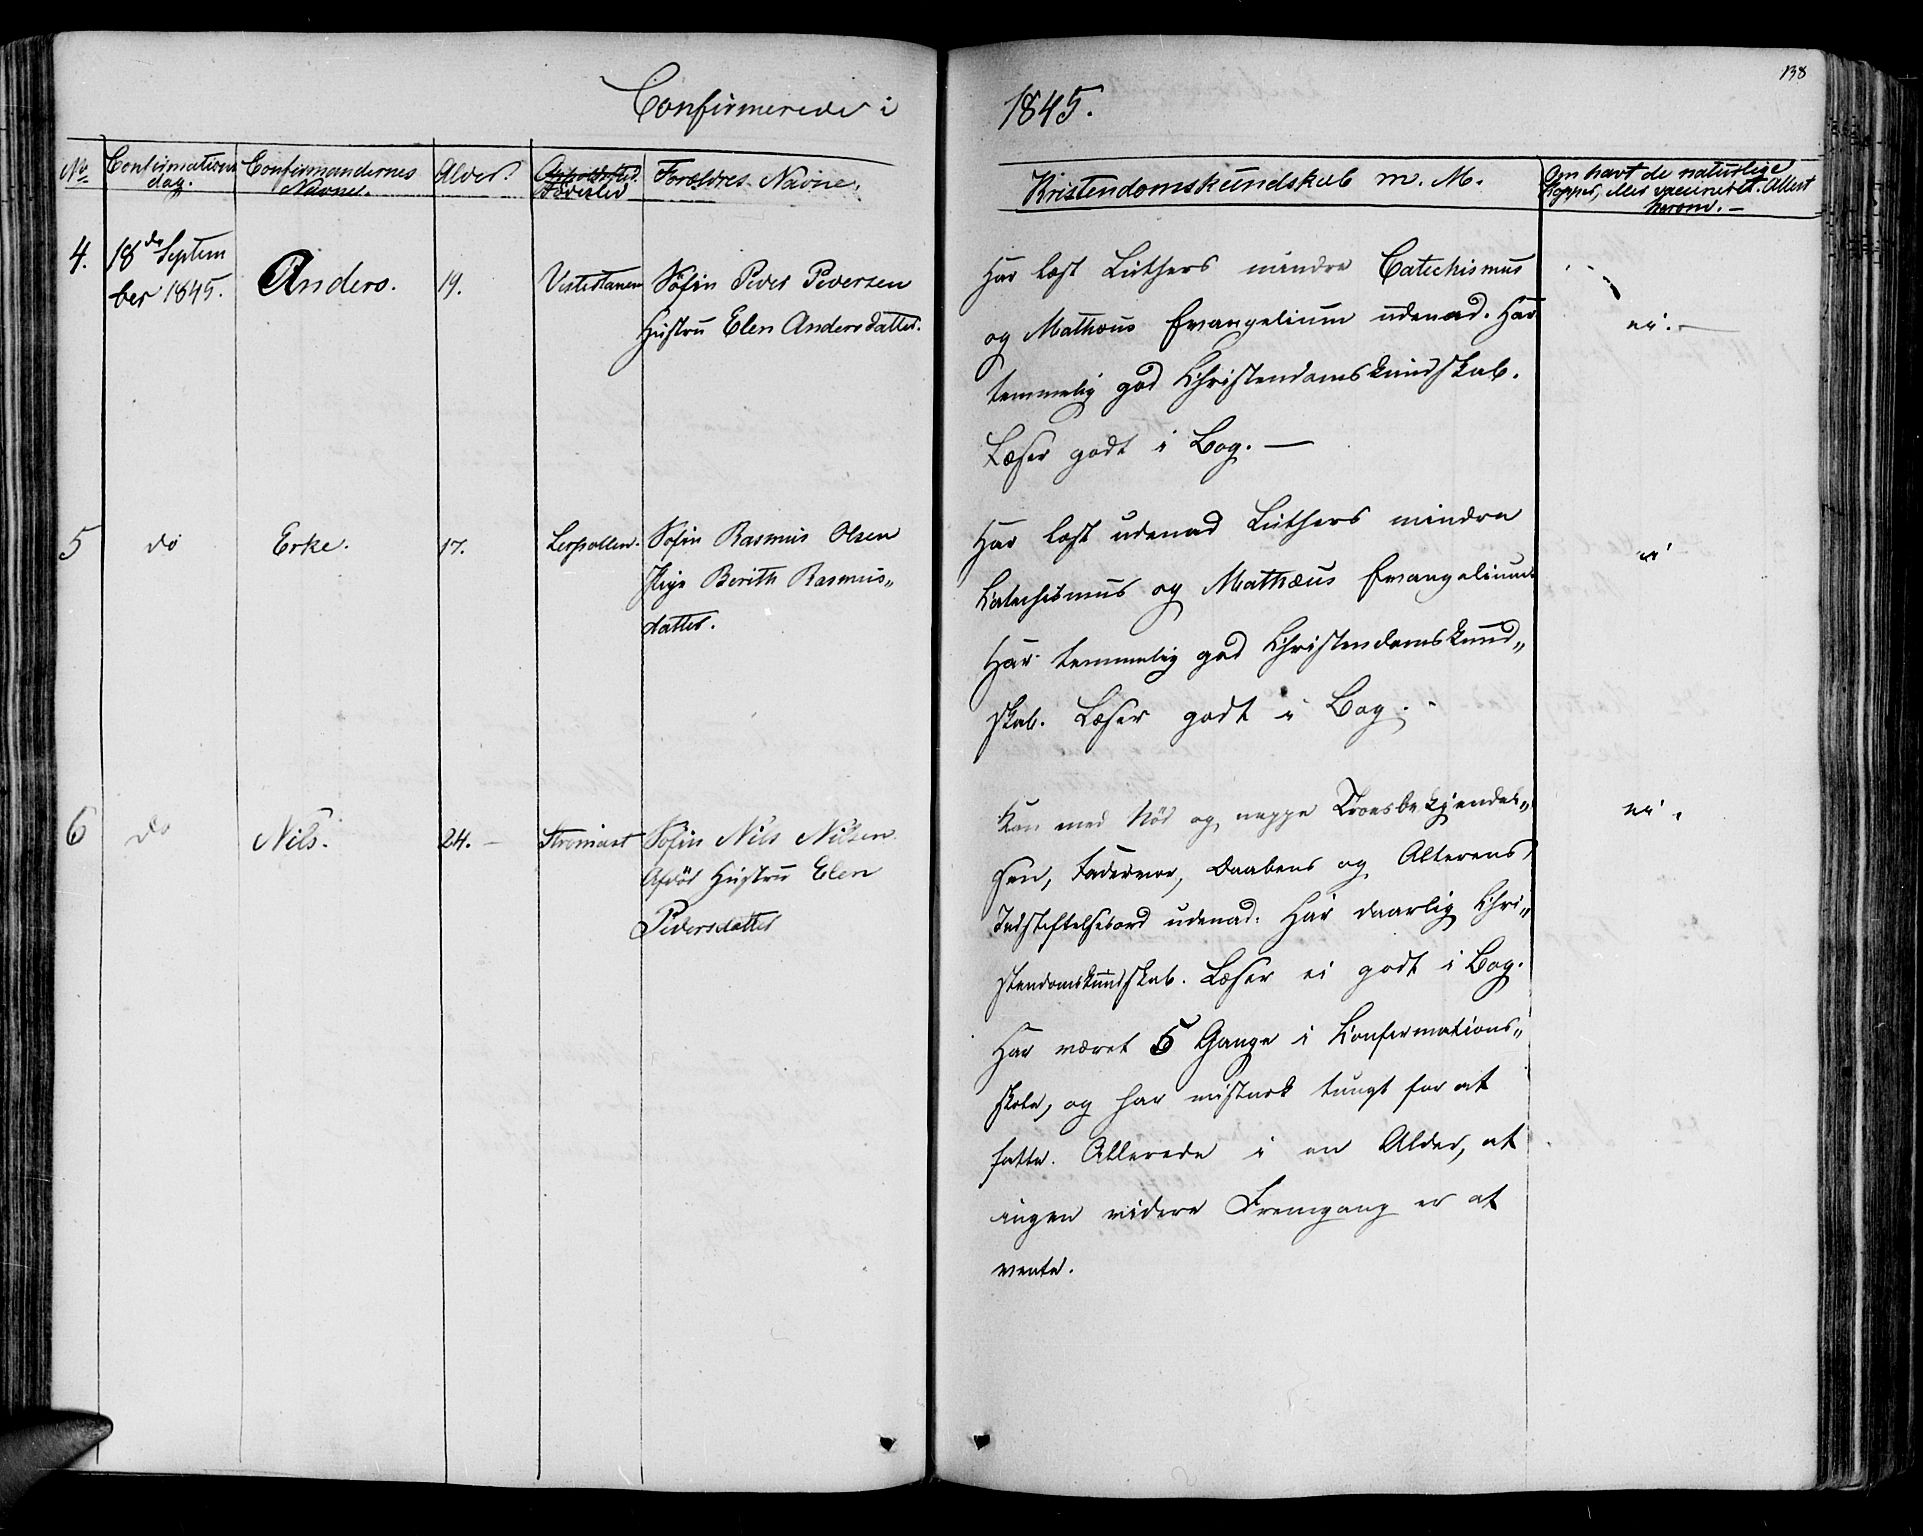 Confirmerede i
1845.
138
No
Confirmations
dag.
Confirmandernes
Navne.
Alder.
Opholdsted.
Födested
Foreldres Navne.
Kristendomskundskab m. M.
Om havt de naturlige
Kopper, eller vaccineret. Attest
herom.
4.
18de Septem
ber 1845.
Anders.
19.
Vestertanen
Söfin Peder Pedersen
Hustru Elen Andersdatter.
Har læst Luthers mindre Catechismus
og Mathæus Evangelium udenad. Har
temmelig god Christendomskundskab.
Læser godt i Bog. —
ei. —
5
do
Erke.
17.
Leirpollen.
Söfin Rasmus Olsen
Pige Berith Rasmus„
datter.
Har læst udenad Luthers mindre
Catechismus og Mathæus Evangelium
Har temmelig god Christendomskund„
skab. Læser godt i Bog.
ei
6
do
Nils.
24. —
Söfin Nils Nilsen
Afdöd Hustru Elen
Pedersdatter
Kan med Nöd og neppe Troesbekjendel„
sen, Fadervor, Daabens og Alterens
Indstiftelsesord udenad. Har daarlig Chri„
stendomskundskab. Læser ei godt i Bog.
Har været 5 Gange i Confirmations„
skole, og har mistærk tungt for at
fatte. Allerede i en Alder, at
ingen videre Fremgang er at
vente.
ei.